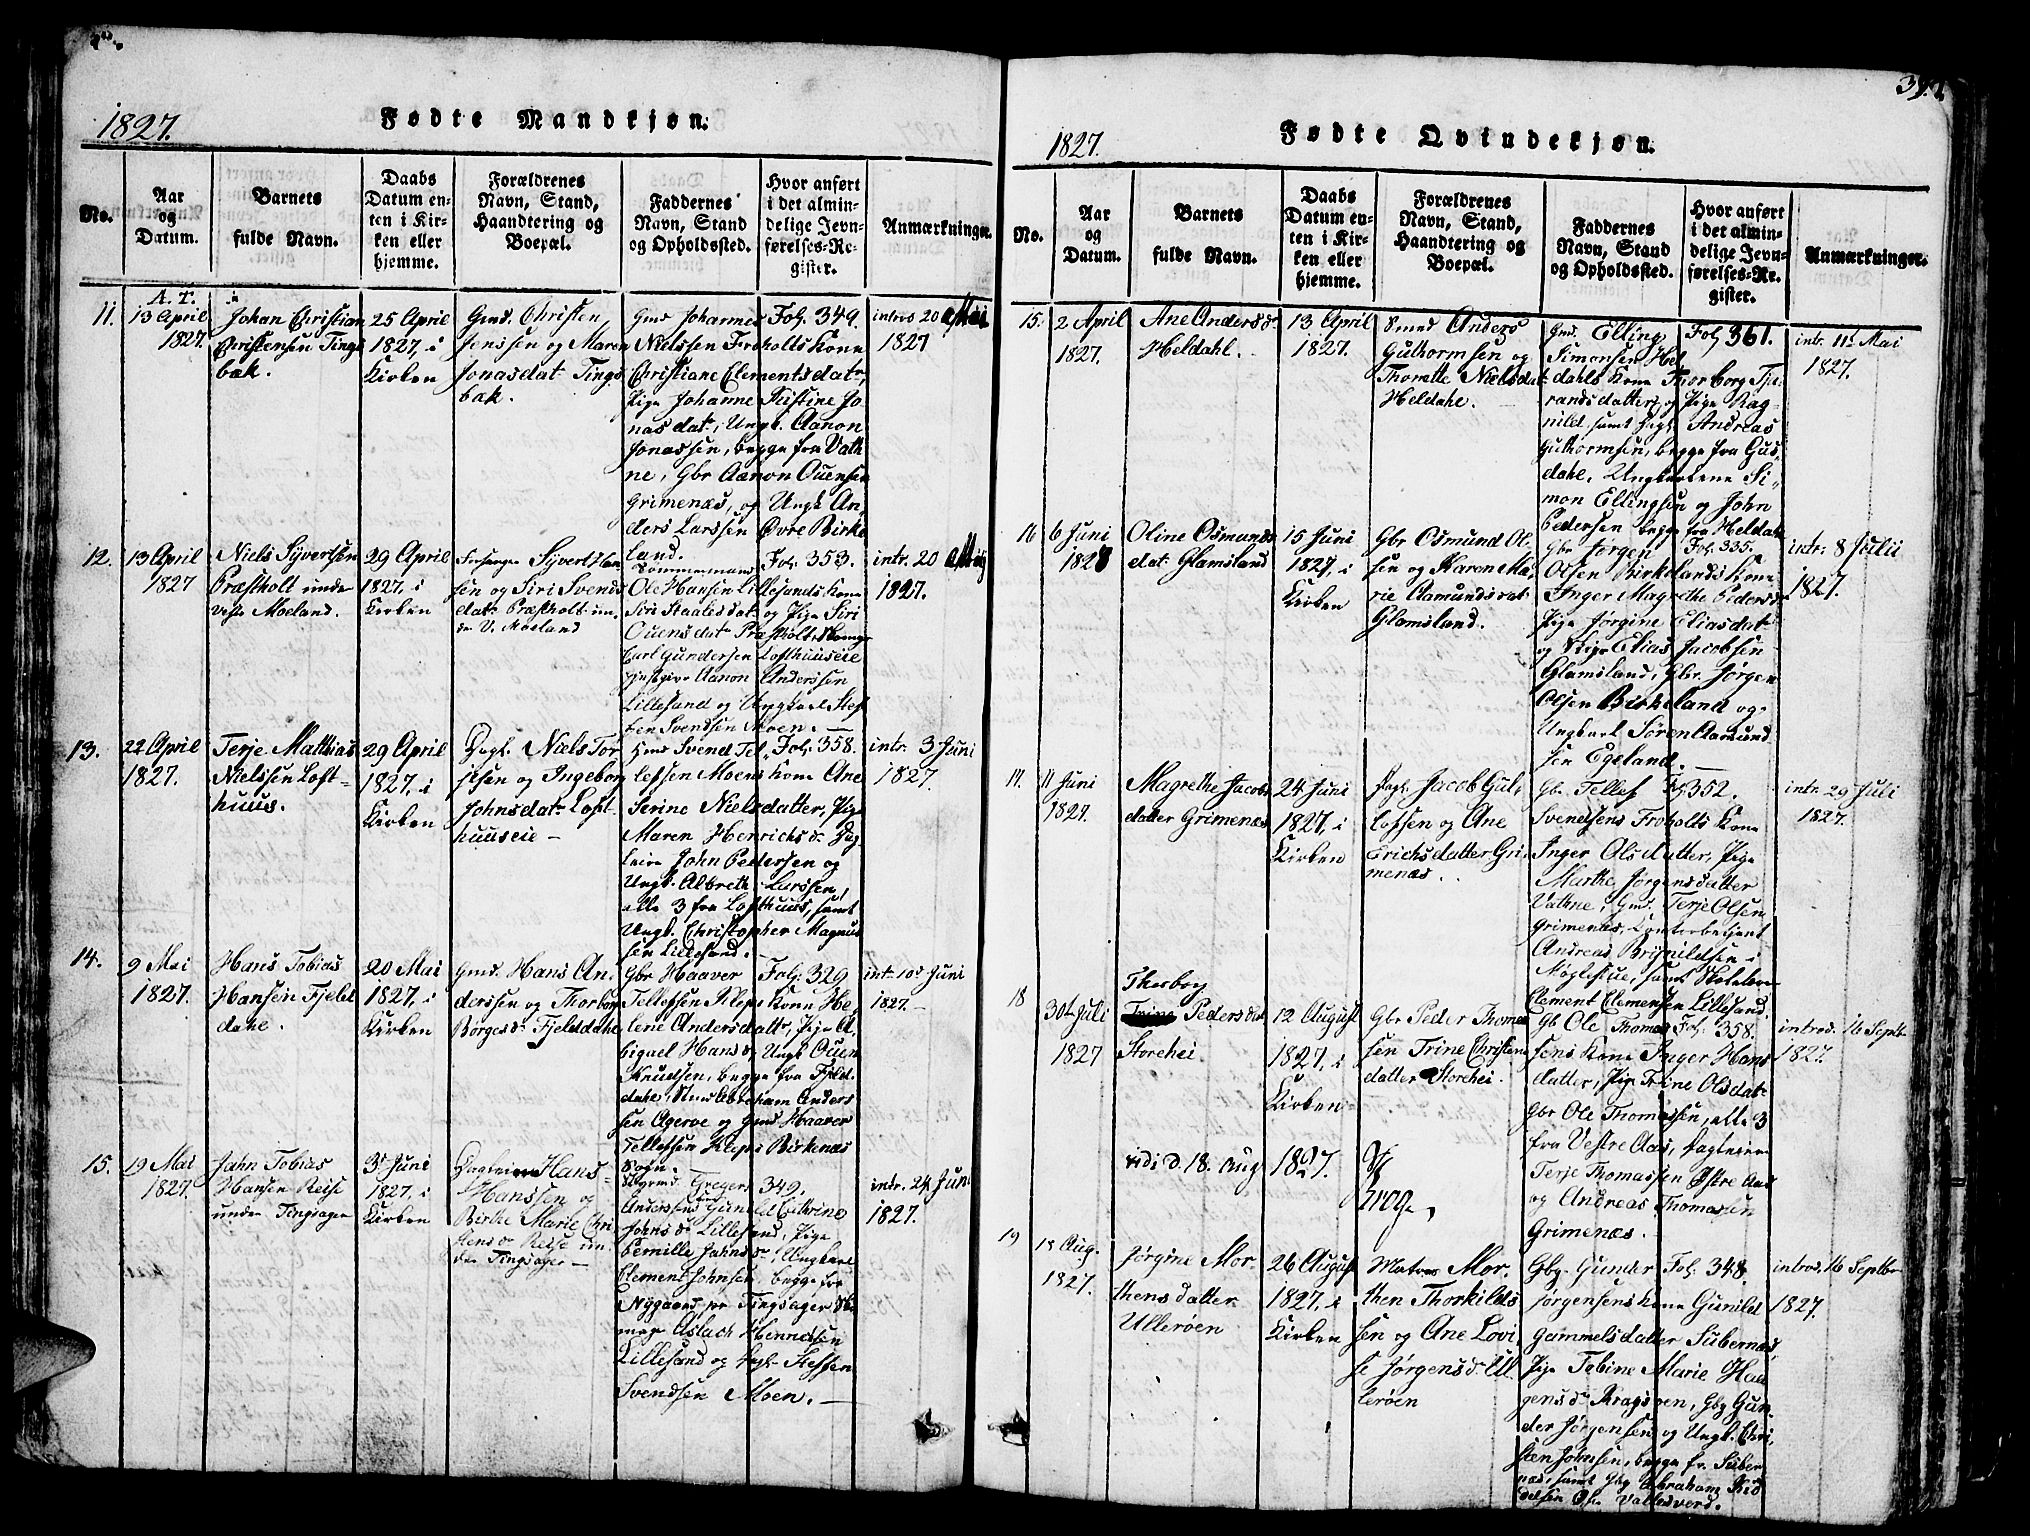 1827.
Fødte Mandkjøn.
No.
Aar
og
Datum.
Barnets
fulde Navn.
Daabs
Datum en-
ten i Kir-
ken eller
hjemme.
Forældrenes
Navn, Stand,
Haandtering og
Boepæl.
Faddernes
Navn, Stand
og Opholdssted.
Hvor anført
i det almin-
delige Jevn-
førelses-Re-
gister.
Anmærkninger.
11.
13 April
1827.
Johan Christian
Christensen Tings
bæk.
25 April
1827, i
Kirken
Gmd. Christen
Jenssen og Maren
Jonasdat Tings
bæk.
Gmd Johannes Fol. 349.
Nielssen Froholts Kone
Christiane Clementsdatr,
Pige Johanne Kistine Jo-
nasdatr, Ungk. Aanon
Jonassen, begge fra Vath
ne, Gbr Aanon Ouensen
Grimenæs, og Ungk An-
ders Larssen Øvre Birke
land.
intro 20 Mai
1827
12.
13 April
1827
Niels Syvertsen
Præstholt unde
vestre Moeland.
29 April
1827, i
Kirken
Syvert Han
sen og Siri Svends
datr Præstholt un-
der V. Moeland
Fol. 353.
Ole Hansen Lillesands Kone
Siri Staalesdat og Pige Siri
Ouensdatr Præstholt,
Carl Gundersen Lofthuuseie
Aanon Anderssen
Lillesand og Ungkarl Stef
fen Svendsen Moen.
intr. 20 Mai
1827.
13.
22 April
1827.
Terje Mathias
Nielssen Loft-
huus.
29 April
1827, i
Kirken
Dagl. Niels Ter
jesen og Ingeborg
Johnsdatr Loft
huuseie
Gmd Svend Tel Fol. 358.
lefsen Moens Kone Ane
Serine Nielsdatter, Pige
Maren Henrichsdr
John Pedersen og
Ungk. Albreth Larssen,
alle 3 fra Lofthuus, samt
Ungk. Christopher Magnus
sen Lillesand.
intr. 3 Juni
1827.
14.
9 Mai
1827.
Hans Tobias
Hansen Fjeld
dahl.
20 Mai
1827, i
Kirken
Gmd. Hans An
derssen og Thorborg
Borgesdr Fjelddahl
Gbr Haaver Fol. 329.
Tellefsen Kleps Kone He-
lene Andersdatr, Pige A
bigael Hansdr Ungk Ouen
Knudsen, begge fra Fjeld
dahl, Abraham Anders
sen Agerøe og Gmd Haaver
Tellefsen Kleps Birkenæs
Sogn.
intr. 10 Juni
1827.
15.
19 Mai
1827.
Jahn Tobias
Hansen Reise
under Tingsager
3 Juni
1827, i
Kirken
Hans
Hanssen og
Birthe Marie Chri
stensdr Reise un-
der Tingsager
Gregers 349.
Anderssens Gunild Cathrine
Johnsdr Lillesand, Pige
Pernille Jahnsdr, Ungkarl
Clement Johnsen, begge fra
Nygaard pr Tingsager
Aslach Henrichsen
Lillesand og Steffen
Svendsen Moen.
intr. 24 Juni
1827.
1827.
Fødte Qvindekjøn.
No.
Aar
og
Datum.
Barnets
fulde Navn.
Daabs
Datum en-
ten i Kir-
ken eller
hjemme.
Forældrenes
Navn, Stand,
Haandtering og
Boepæl.
Faddernes
Navn, Stand
og Opholdssted.
Hvor anført
i det almin-
delige Jevn-
førelses-Re-
gister.
Anmærkninger.
15.
2 April
1827.
Ane Andersdr
Heldahl.
13 April
1827.
Anders
Guthormsen og
Thorette Nielsdat
Heldahl.
Gmd. Elling Fol 361.
Simonsen Hel
dahls Kone Thorborg Tje
randsdatter, og Pige Rag-
nild samt Andreas
Guthormsen, begge fra Gus
dahl, Ungkarlene Si-
mon Ellingsen og John
Pedersen begge fra Heldahl
intr. 11 Mai
1827.
16
6 Juni
1827
Oline Osmunds
dat. Glamsland
15 Juni
1827, i
Kirken
Gbr Osmund Ol-
sen og Karen Ma-
rie Aamundsdat
Glamsland.
Gbr Jørgen Fol. 335.
Olsen Birkelands Kone
Inger Magrethe Pedersdr
Pige Jørgine Eliasdatr
og Elias Jacobsen
Glamsland, Gbr. Jørgen
Olsen Birkeland og
Ungkarl Søren Aamund
sen Egeland.
intr. 8 Julii
1827.
17.
11 Juni
1827.
Magrethe Jacobs
datter Grimenæs
24 Juni
1827, i
Kirken
Jacob Gul-
lofsen og Ane
Erichsdatter Gri-
menæs.
Gbr. Tellef Fol 352.
Svendsens Froholts Kone
Inger Olsdatter, Pige
Marthe Jørgensdatter
Vathne, Gmd. Terje Olsen
Grimenæs, Contorbetjent
Andreas Brynildsen
Møglestue, samt
Clement Clemensen Lillesand.
intr. 29 Juli
1827.
18
30te Juli
1827
Thorborg
Pedersdat
Storehei.
12 August
1827, i
Kirken
Gbr Peder Thomas
sen Trine Christens
datter Storehei.
Gb Ole Thomas Fol. 358.
sens Kone Inger Hans
datter, Pige Trine Olsdat
Gbr Ole Thomassen, alle 3
fra Vestre Aas,
Terje Thomassen Østre Aas
og Andreas Thomassen
Grimenæs.
introd. 16 Septbr
1827.
vidi d. 18. Aug 1827.
19
18 Aug.
1827.
Jørgine Mor-
thensdatter
Ullerøen
26 August
1827, i
Kirken
Matros Mor-
then Thorkilds
sen og Ane Lovi
se Jørgensdr Ul
lerøen
Gbg. Gunder Fol. 348.
Jørgensens Kone Gunild
Gammelsdatter Sæbernæs,
Pige Tobine Marie Haa
gensdr Kragsøen, Gbg Gun-
der Jørgensen og Ungk. Chri-
sten Johnsen, begge fr. Sæber
næs, samt Abraham
Vallesverd.
introd. 16 Septbr
1827.